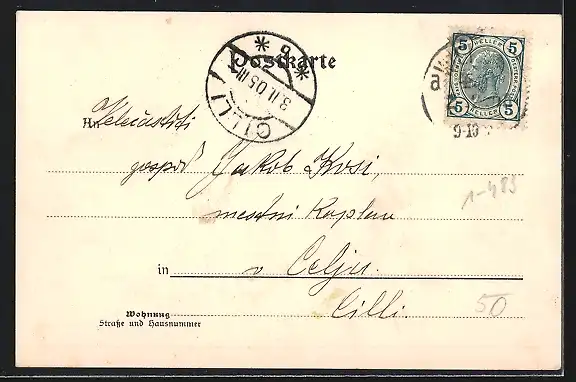 Postkarte
CILLI
3.II.05
5 HELLER 5
5 HELLER 5
9-10
An Velečastiti
gospod Jakob Kosi,
mestni Kaplan
in v Celju.
Cilli.
1-493
50
Wohnung
Straße und Hausnummer